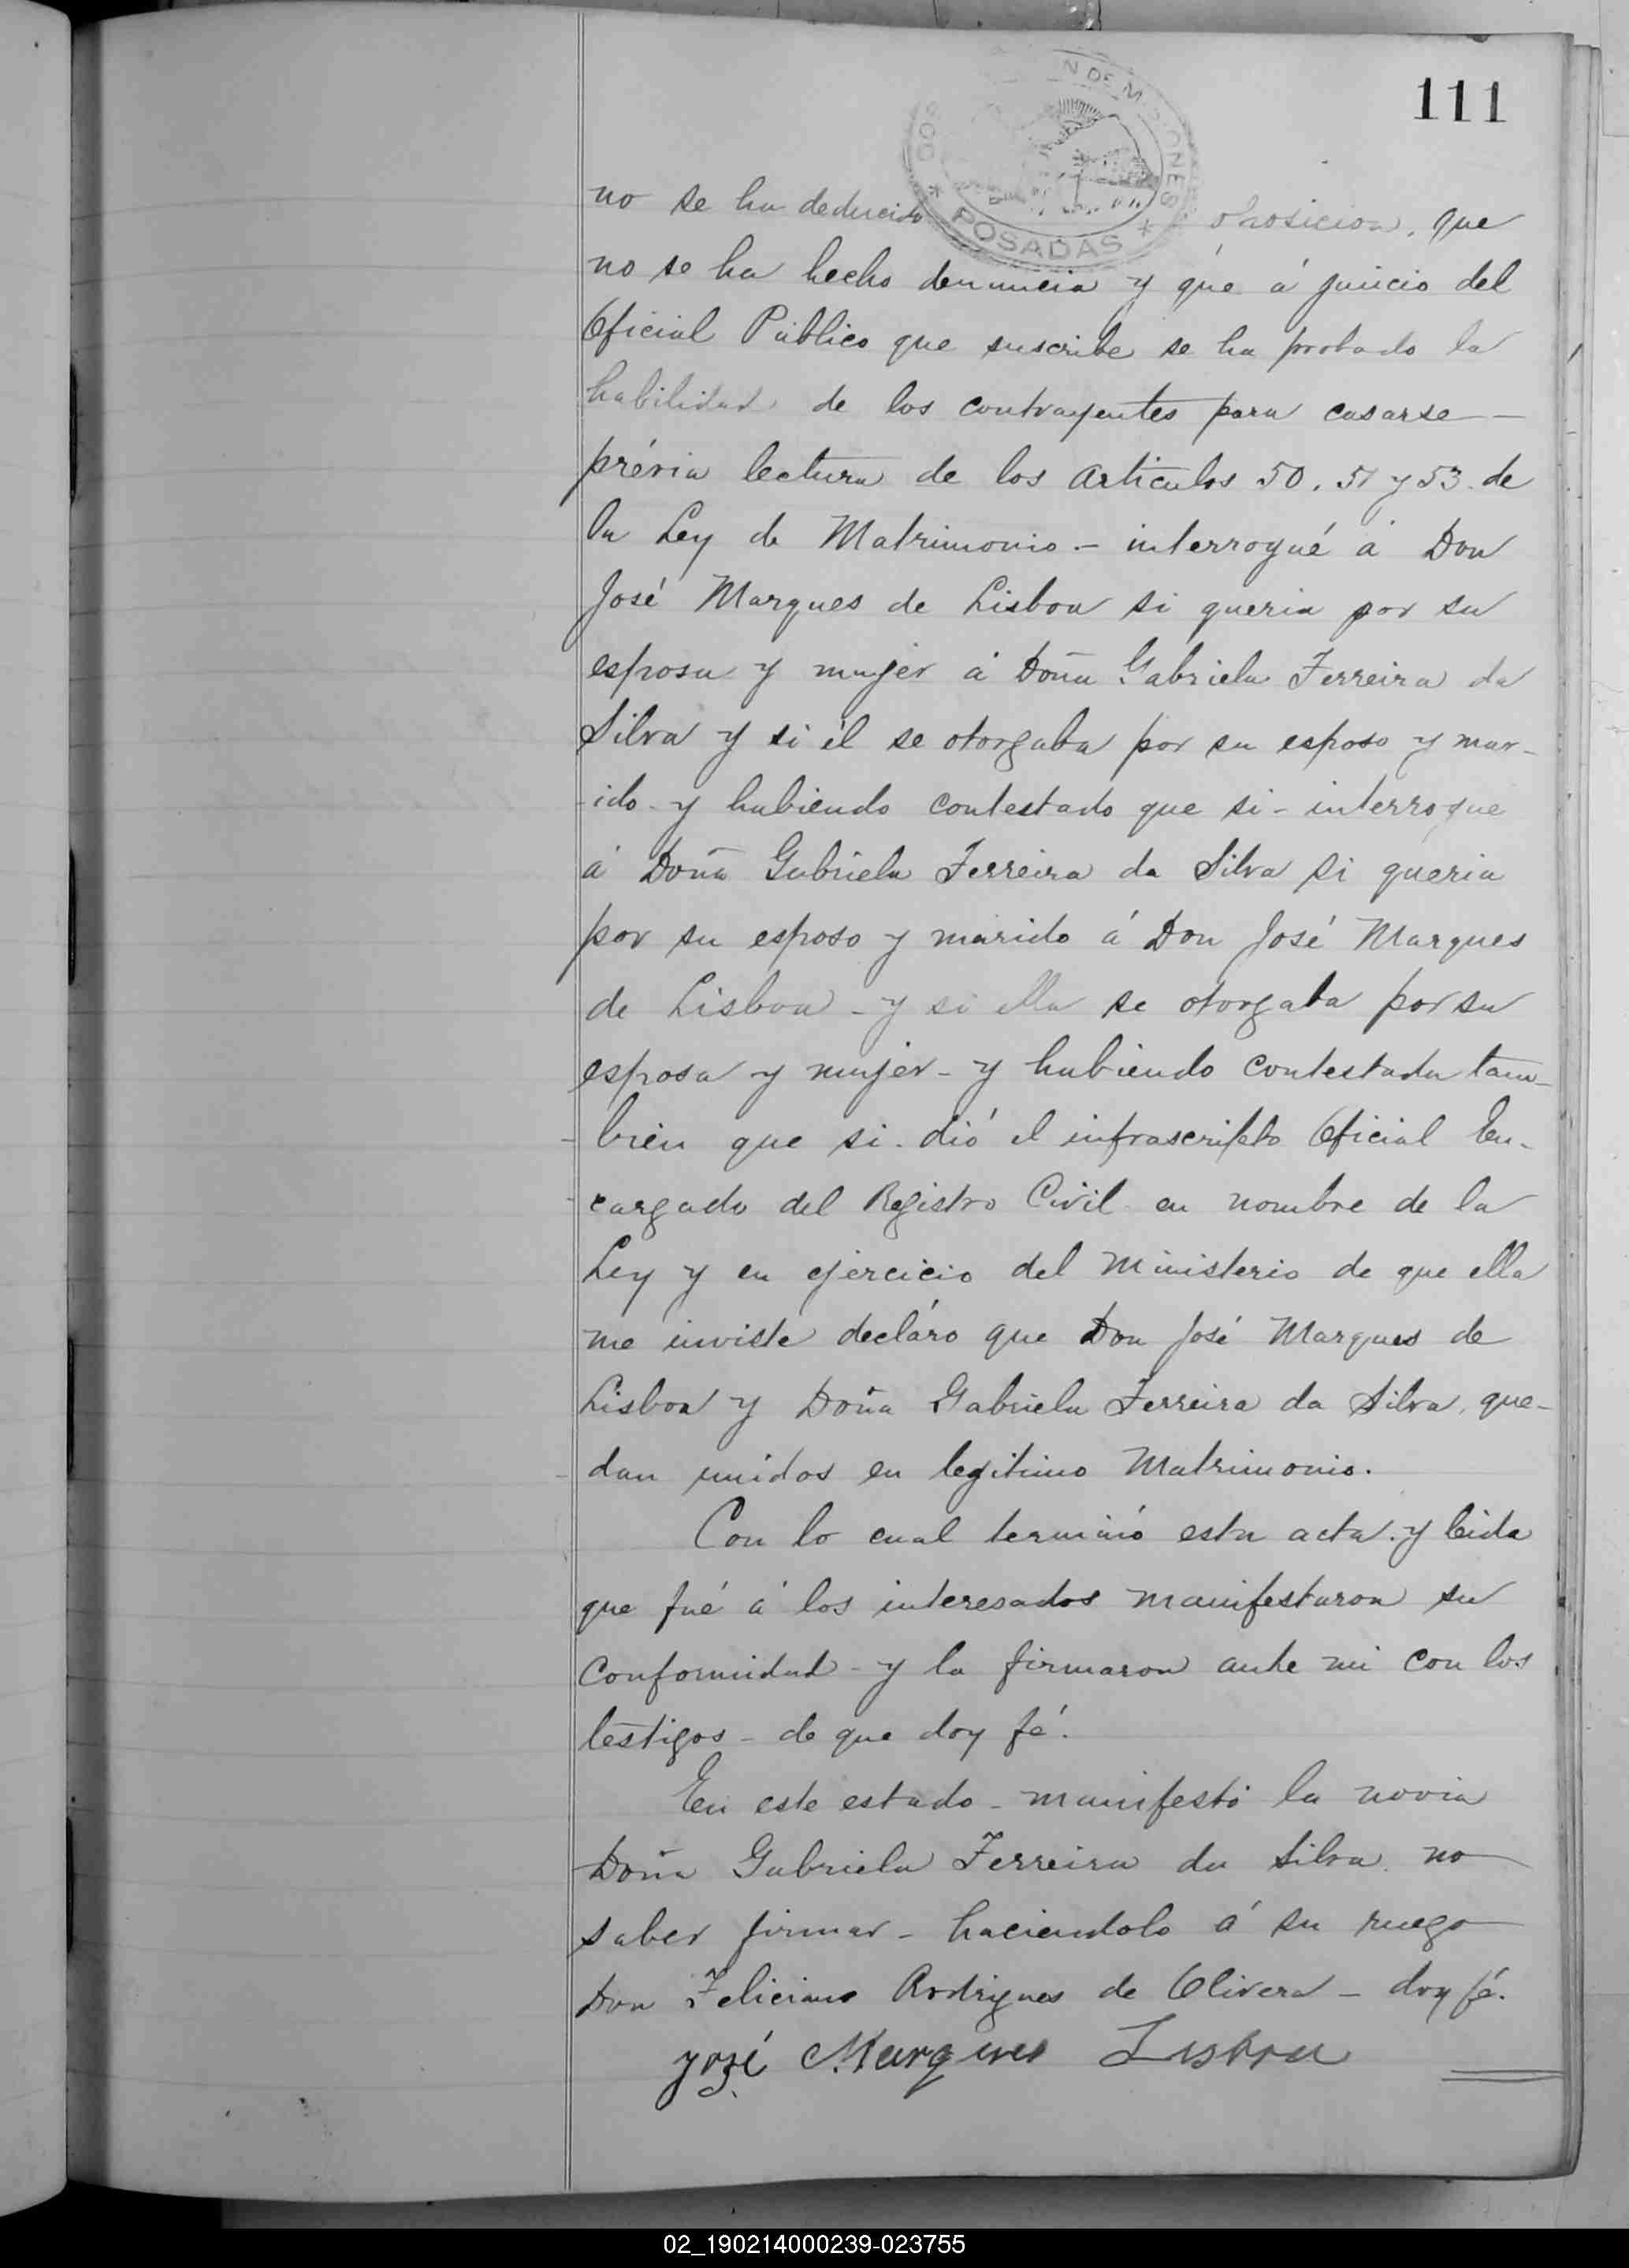 111
N DE MISIONES
* POSADAS *
no se ha deducido oposicion, que
no se ha hecho denuncia y que á juicio del
Oficial Público que suscribe se ha probado la
habilidad de los contrayentes para casarse —
prévia lectura de los articulos 50, 51 y 53 de
la Ley de Matrimonio. - interrogué á Don
José Marques de Lisboa si queria por su
esposa y mujer á Doña Gabriela Ferreira da
Silva y si él se otorgaba por su esposo y mar-
-ido - y habiendo contestado que si - interrogue
á Doña Gabriela Ferreira da Silva si queria
por su esposo y marido á Don José Marques
de Lisboa - y si ella se otorgaba por su
esposa y mujer - y habiendo contestada tam-
-bien que si. dió el infrascripto Oficial En-
-cargado del Registro Civil en nombre de la
Ley y en ejercicio del Ministerio de que ella
me inviste decláro que Don José Marques de
Lisboa y Doña Gabriela Ferreira da Silva, que-
-dan unidos en legitimo Matrimonio.
Con lo cual terminó esta acta. y leida
que fué á los interesados manifestaron su
conformidad - y la firmaron ante mi con los
testigos - de que doy fé.
En este estado - manifestó la novia
Doña Gabriela Ferreira da Silva no
saber firmar - haciendolo á su ruego
Don Feliciano Rodrigues de Olivera - doy fé.
José Marques Lisboa
02_190214000239-023755